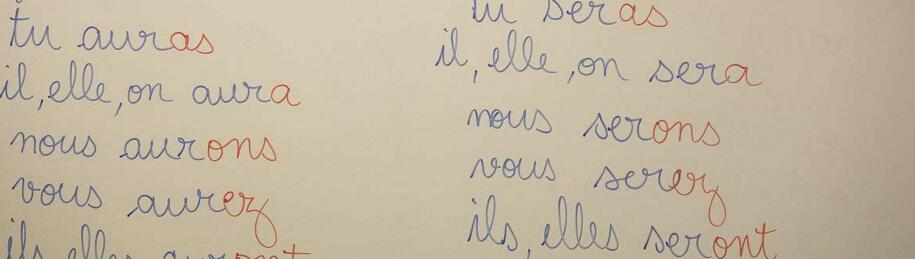 tu auras
il, elle, on aura
nous aurons
vous aurez
ils, elles auront
tu seras
il, elle, on sera
nous serons
vous serez
ils, elles seront